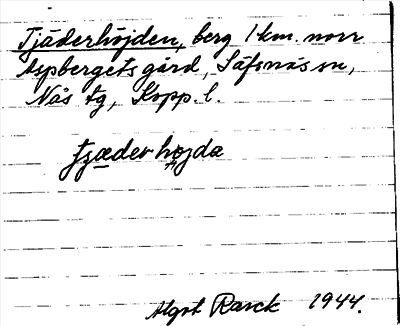 Tjäderhöjden, berg 1 km. norr
Aspbergets gård, Säfsnäs sn,
Näs tg, Kopp. l.
tjæderhøjda
Algot Rarck 1944.